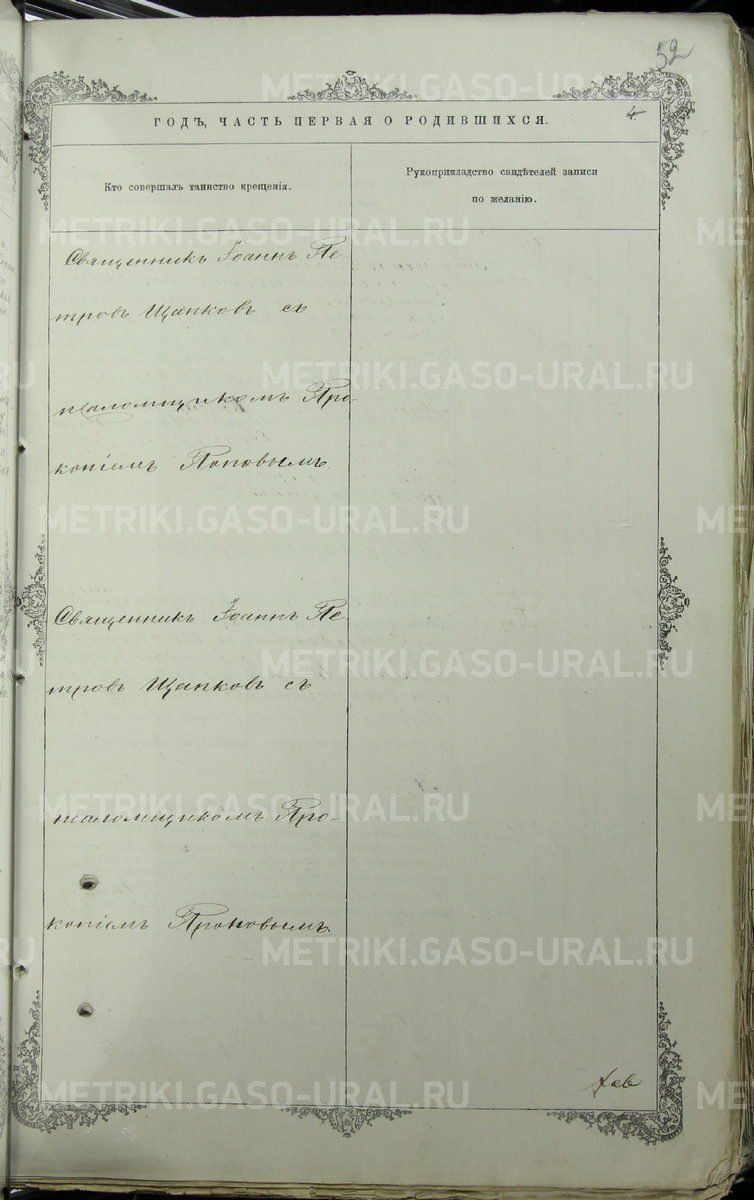 52
ГОДЪ, ЧАСТЬ ПЕРВАЯ О РОДИВШИХСЯ.
4
Кто совершалъ таинство крещенія.
Рукоприкладство свидѣтелей записи
по желанію.
Священникъ Іоаннъ Пе-
тровъ Щапковъ съ
псаломщикомъ Про-
копіемъ Поповымъ
Священникъ Іоаннъ Пе
тровъ Щапковъ съ
псаломщикомъ Про-
копіемъ Проновымъ.
METRIKI.GASO-URAL.RU